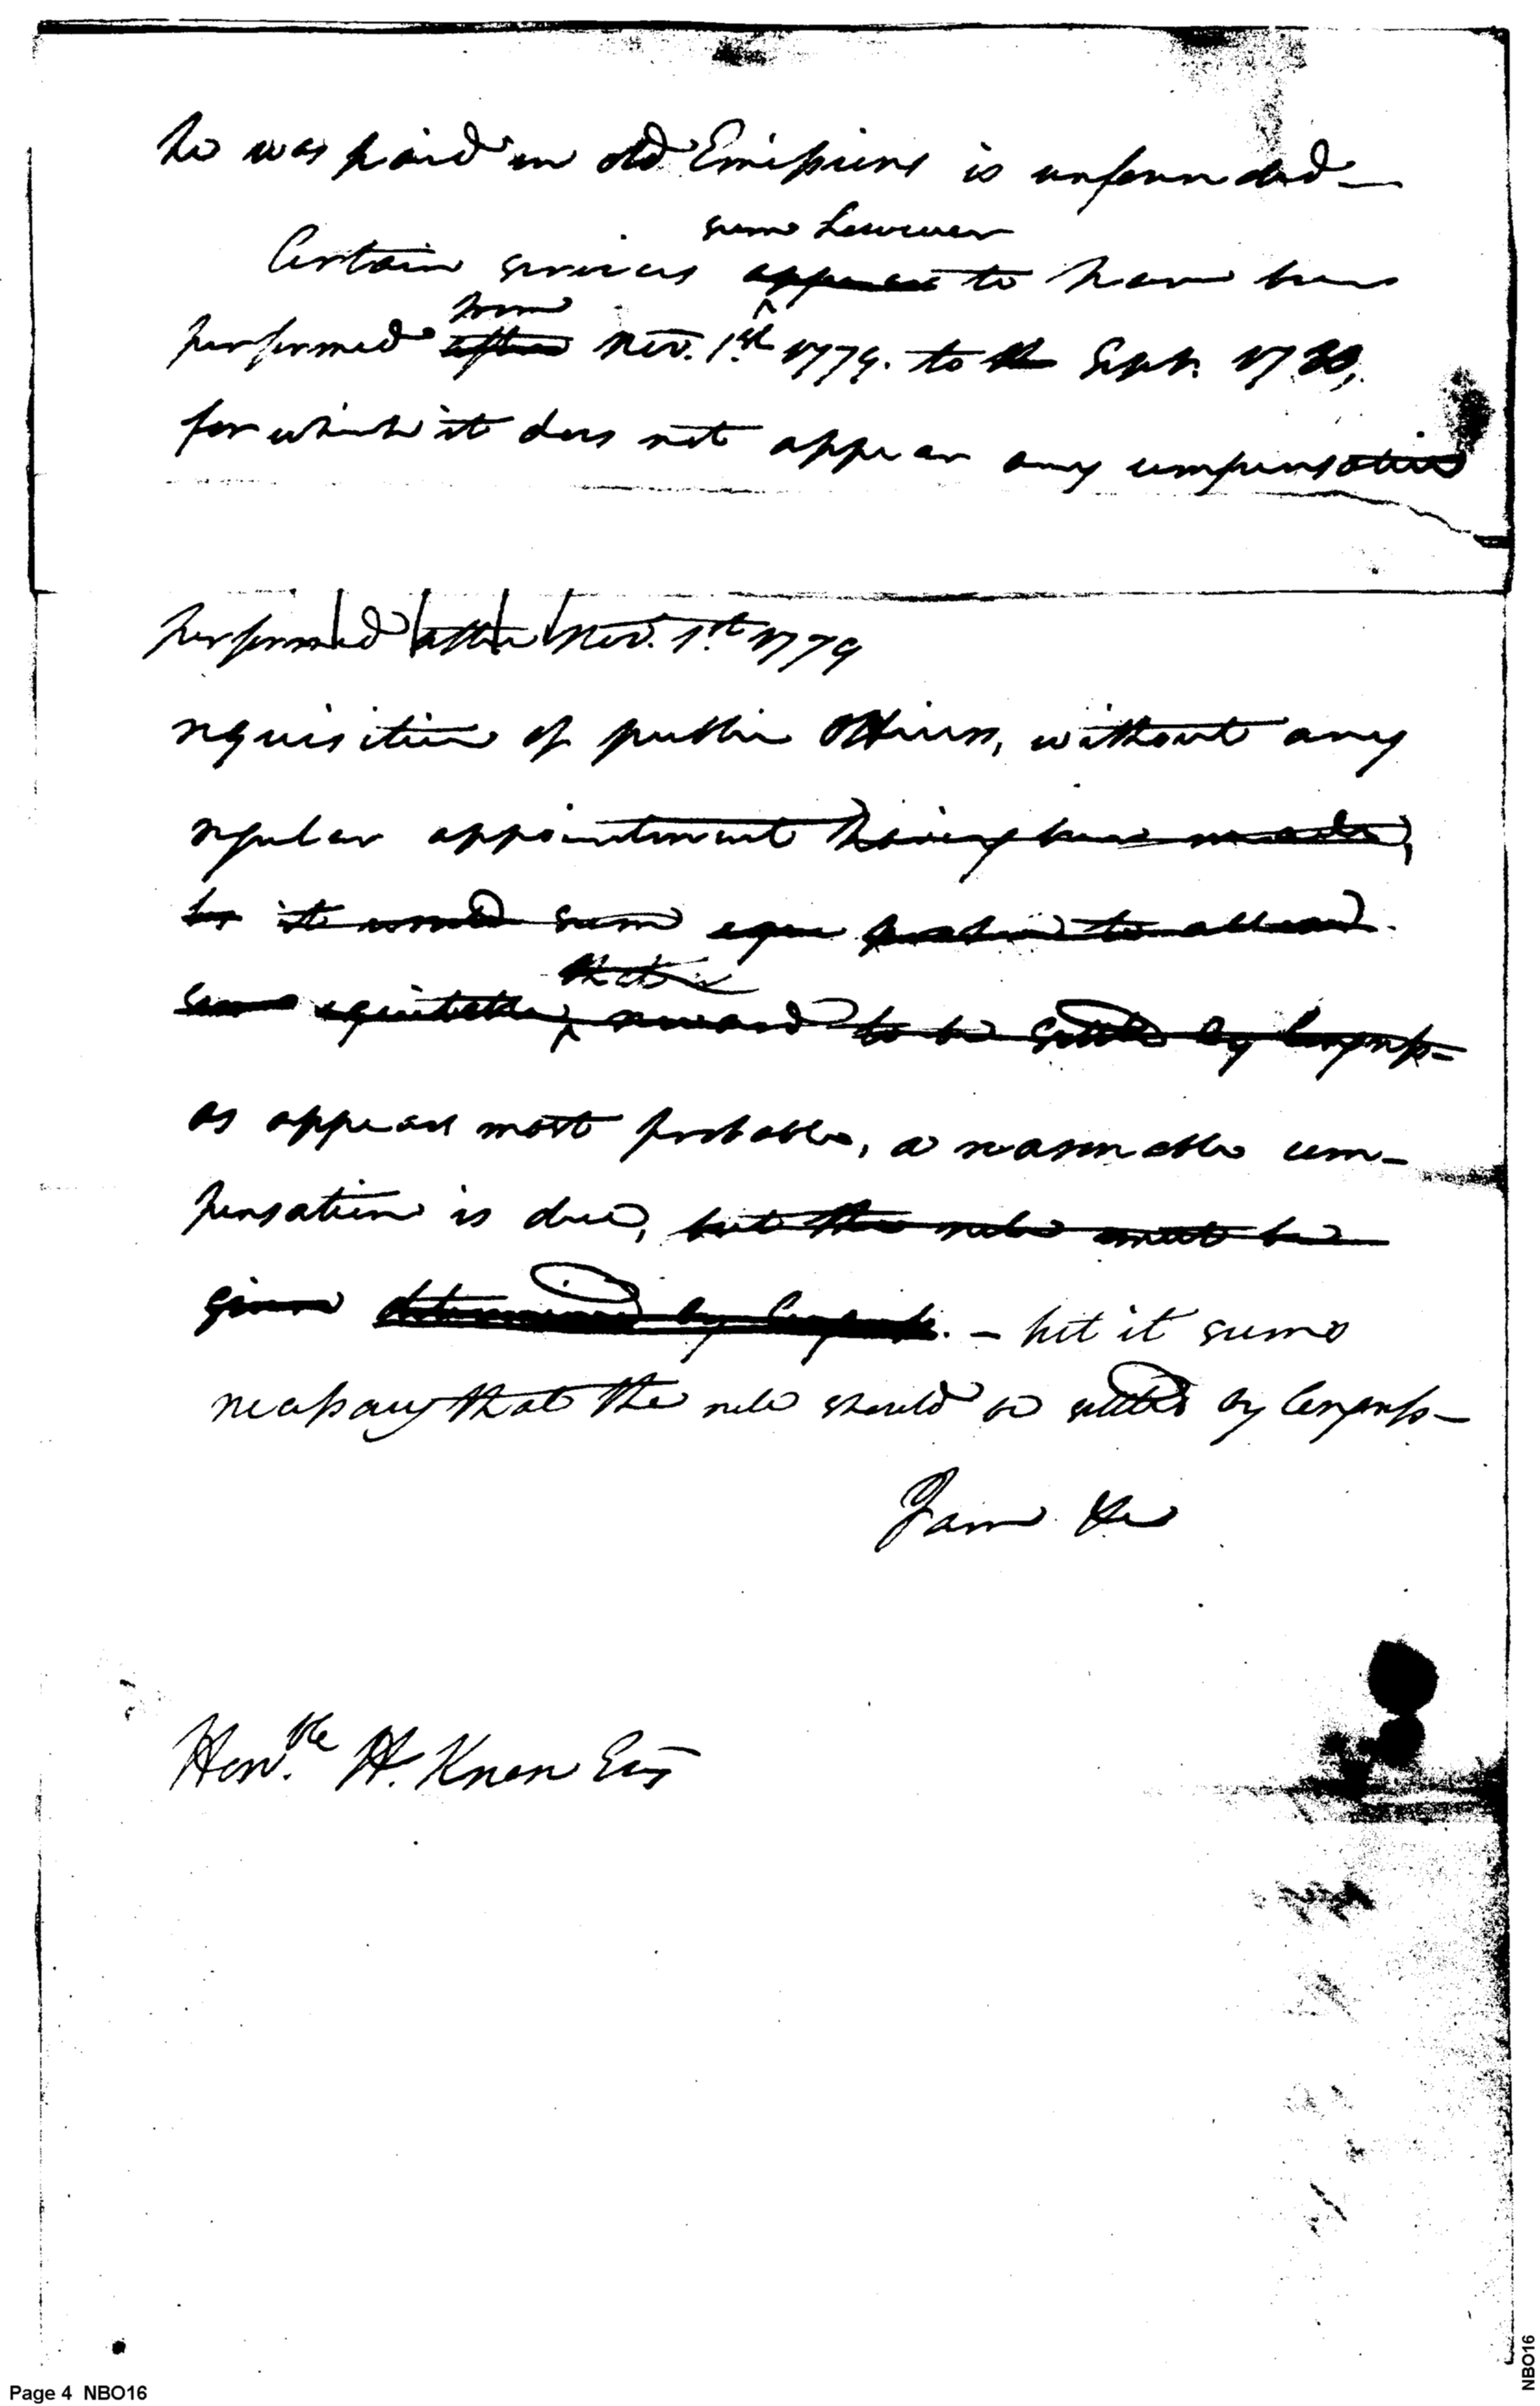 he was paid in old Emissions is unfounded—
seem however
Certain services appear to have been
from
performed after Nov. 1st 1779. to the Sept. 1780,
for which it does not appear any compensation
performed after Nov. 1st 1779
requisition of public Officers, without any
regular appointment having been made,
it would seem to allow
some equitable reward to be settled by Congress-
as appears most probable, a reasonable com-
pensation is due, but the rule must be
given determined by Congress. – but it seems
necessary that the rule should be settled by Congress—
I am &c
Honble H. Knox Esq
Page 4 NBO16
NBO16